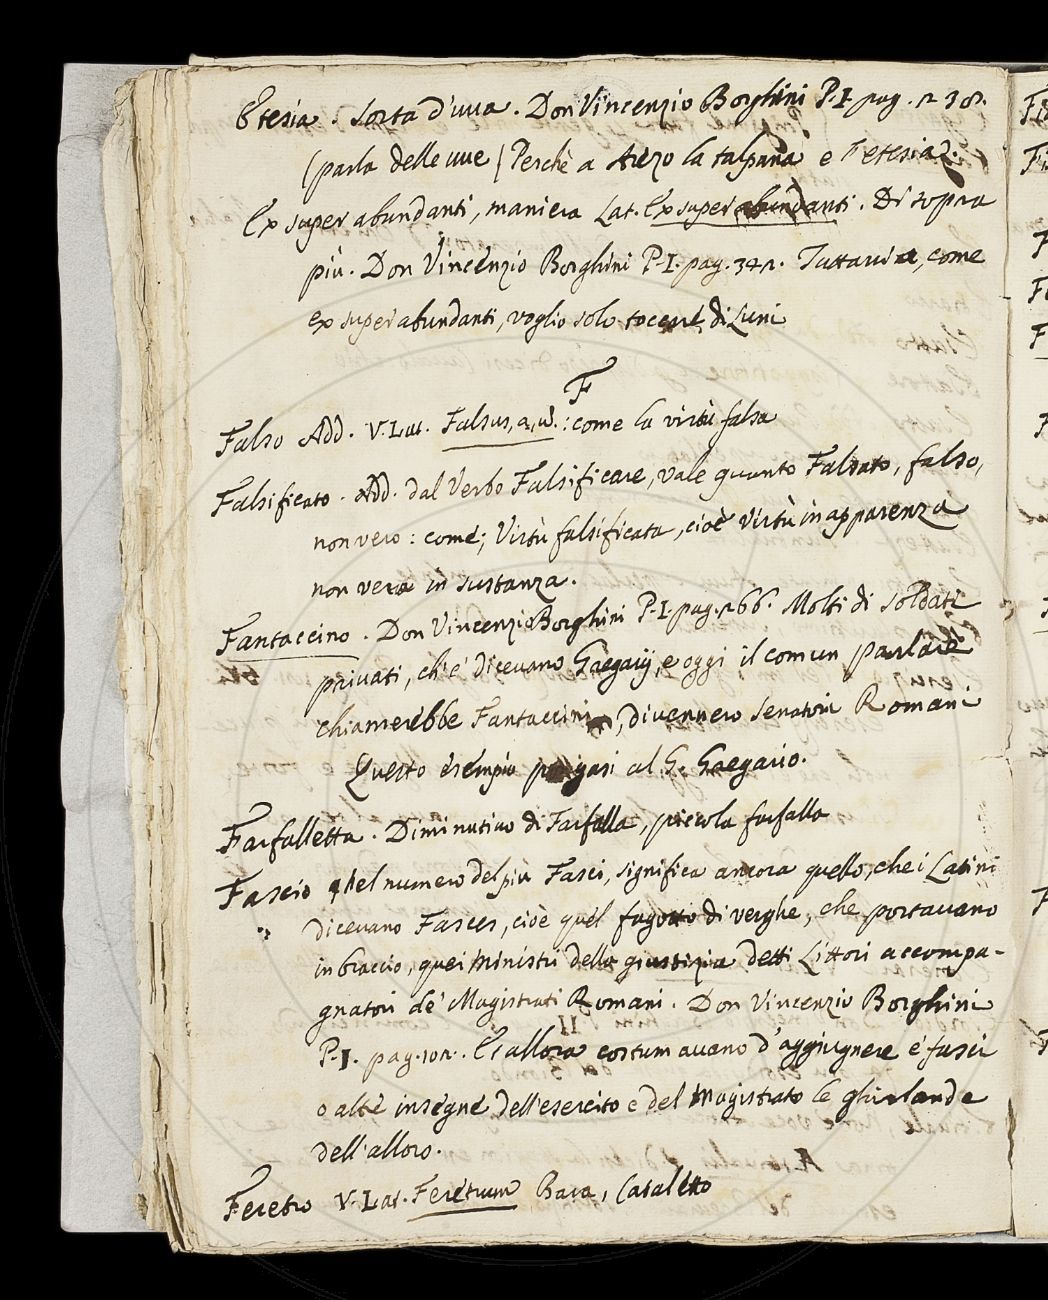 Etesia. Sorta d'uva. Don Vincenzio Borghini P. I. pag.
(parla delle uve) Perchè a Arezo la talpana e l'etesia.
Ex superabundanti, maniera Lat. Ex superabundanti. Di sopra
più. Don Vincenzio Borghini P. I. pag. Tuttavia, come
ex superabundanti, voglio solo toccare di Luni
F
Falso Add. V. Lat. Falsus, a, u.: come la virtù falsa
Falsificato. Add. dal Verbo Falsificare, vale quanto Falsato, falso,
non vero: come; Virtù falsificata, cioè virtù in apparenza
non vera in sustanza.
Fantaccino. Don Vincenzio Borghini P. I. pag. 166. Molti di soldati
privati, ch'e' dicevano Gregarij, e oggi il comun parlare
chiamerebbe Fantaccini, divennero senatori Romani
Questo esempio pongasi al G. Gregario.
Farfalletta. Diminutivo di Farfalla, piccola farfalla
Fascio nel numero del più Fasci, significa ancora quello, che i Latini
dicevano Fasces, cioè quel fagotto di verghe, che portavano
in braccio, quei ministri della giustizia detti Littori accompa-
gnatori de' Magistrati Romani. Don Vincenzio Borghini
P. I. pag. E allora costumavano d'aggiugnere e' fasci
o altre insegne dell'esercito e del magistrato le ghirlande
dell'alloro.
Feretro V. Lat. Feretrum Bara, Cataletto